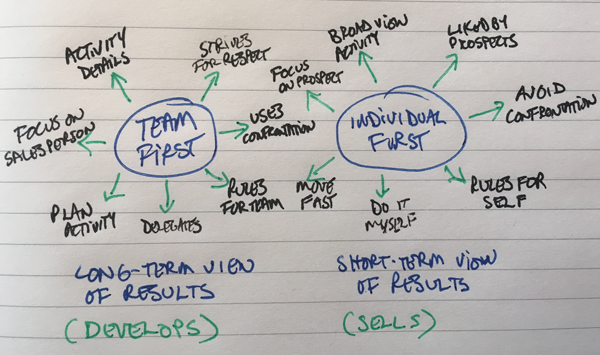 ACTIVITY
DETAILS
STRIVES
FOR RESPECT
FOCUS ON
SALESPERSON
TEAM
FIRST
USES
CONFRONTATION
PLAN
ACTIVITY
DELEGATES
RULES
FOR TEAM
LONG-TERM VIEW
OF RESULTS
(DEVELOPS)
BROAD VIEW
ACTIVITY
LIKED BY
PROSPECTS
FOCUS
ON PROSPECT
INDIVIDUAL
FIRST
AVOID
CONFRONTATION
MOVE
FAST
DO IT
MYSELF
RULES FOR
SELF
SHORT-TERM VIEW
OF RESULTS
(SELLS)